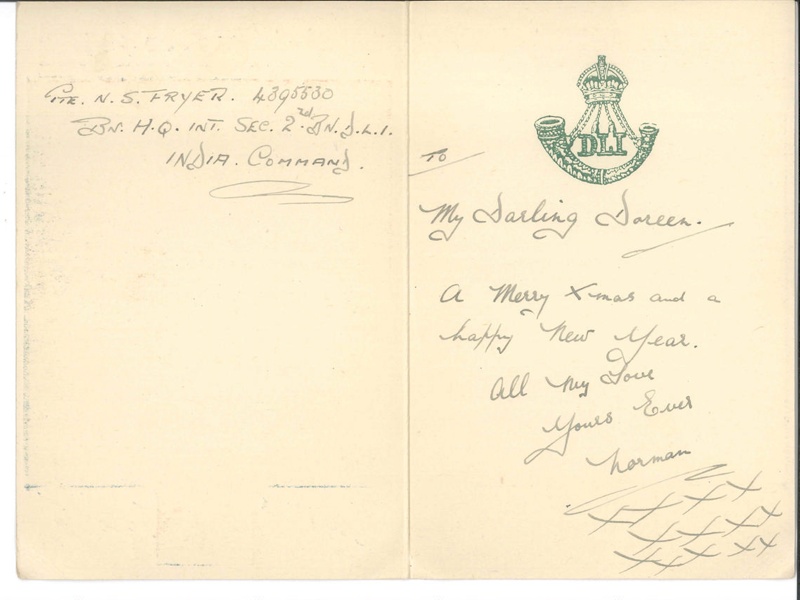 Pte. N. S. FRYER. 4395530
BN. H.Q. INT. SEC. 2nd BN. D.L.I.
INDIA. COMMAND.
DLI
TO
My Darling Doreen.
A Merry Xmas and a
happy New Year.
All My Love
Yours Ever
Norman
X X X X
X X X X
X X X X